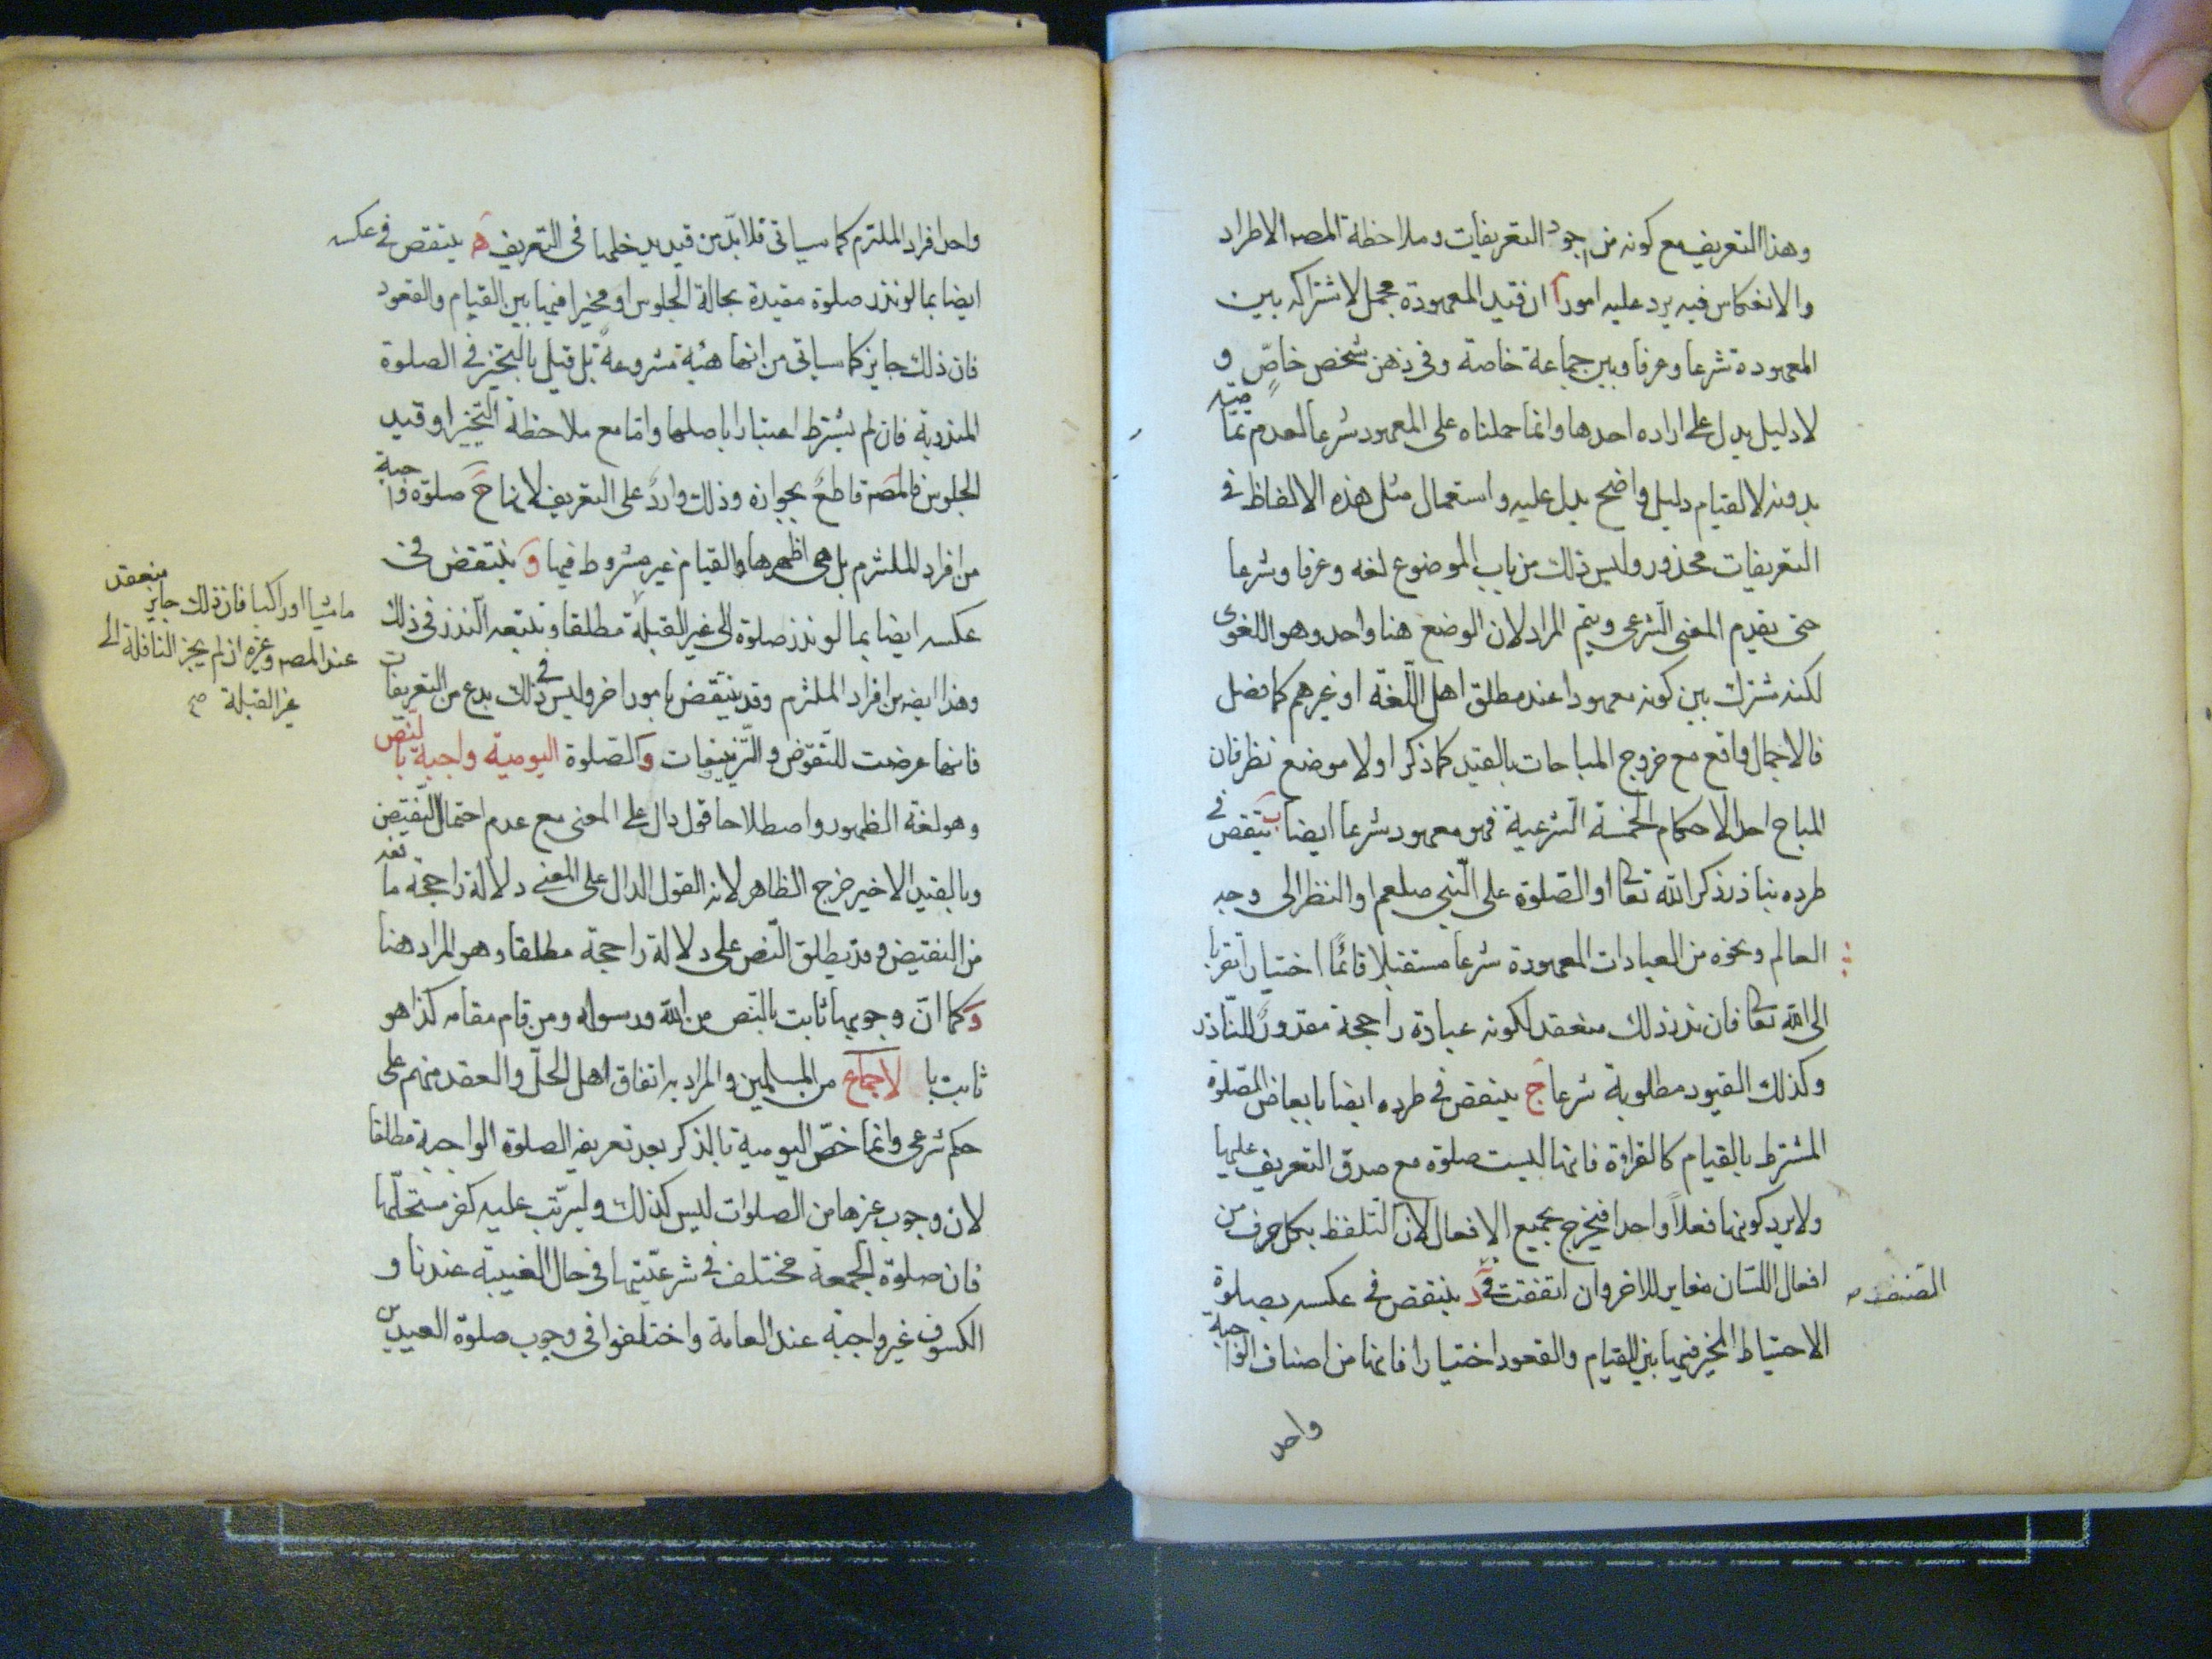 وهذا التعريف مع كونه من اجود التعريفات وملاحظة المصر الاطراد
والانعكاس فيه يرد عليه امور آ ان قيد المعهودة مجمل لاشتراكه بين
المعهودة شرعا وعرفا وبين جماعة خاصة وفي ذهن شخص خاصٍّ و
لا دليل يدل على اراده احدها وانما حملناه على المعهود شرعا لعدم تماميته
بدونه لا لقيام دليل واضح يدل عليه واستعمال مثل هذه الالفاظ في
التعريفات محذور وليس ذلك من باب الموضوع لغه وعرفا وشرعا
حتى يقدم المعنى الشرعى ويتم المراد لان الوضع هنا واحد وهو اللغوى
لكنه مشترك بين كونه معهودا عند مطلق اهل اللّغة او غيرهم كما فصل
فالاجمال واقع مع خروج المباحات بالقيد كما ذكر اولا موضع نظر فان
المباح احد الاحكام الخمسة الشرعية فهو معهود شرعا ايضا ب ينتقض في
طرده بناذر ذكر الله تعا او الصّلوة على النّبي صلعم او النظر الى وجه
العالم ونحوه من العبادات المعهودة شرعا مستقبلا قائمًا اختيارا تقربا
الى الله تعا فان نذر ذلك منعقد لكونه عبادة راجحة مقدورًا للنّاذر
وكذلك القيود مطلوبة شرعا ج ينتقض في طرده ايضا بابعاض الصّلوة
المشترط بالقيام كالقراءة فانها ليست صلوة مع صدق التعريف عليها
ولا يرد كونها فعلاً واحدا فيخرج بجميع الافعال لان التلفظ بكل حرف من
افعال اللسان مغاير للاخر وان اتفقت في د ينتقض في عكسه بصلوة
الصنف صح
الاحتياط المخير فيها بين القيام والقعود اختيارا فانها من اصناف الواجبة
واحد
واحد افراد الملتزم كما سياتى فلا بدّ من قيد يدخلها في التعريف ه ينتقض في عكسه
ايضا بما لو نذر صلوة مقيدة بحالة الجلوس او مخيرا فيها بين القيام والقعود
فان ذلك جايز كما سياتى من انها هيئة مشروعة بل قيل بالتخير في الصلوة
المنذورة فان لم يشترط اعتبارا باصلها واما مع ملاحظة التخير او قيد
الجلوس فالمصر قاطع بجوازه وذلك واردٌ على التعريف لانها ح صلوة واجبة
من افراد الملتزم بل هى اظهرها والقيام غير مشروط فيها و ينتقض في
عكسه ايضا بما لو نذر صلوة الى غير القبلة مطلقا وتتبعه النذر في ذلك
ماشيا او راكبا فان ذلك جايز منعقد
عند المصر وغيره ان لم يجز النافلة الى
غير القبلة صح
وهذا ايضا من افراد الملتزم وقد ينتقض بامور اخر وليس في ذلك بدع من التعريفات
فانها عرضت للنّقوض والتزييفات والصّلوة اليومية واجبة بالنّص
وهو لغة الظهور واصطلاحا قول دال على المعنى مع عدم احتمال النّقيض
وبالقيد الاخير خرج الظاهر لانه القول الدال على المعنى دلالة راجحة مانعه
من النقيض وقد يطلق النّص على دلالة راجحة مطلقا وهو المراد هنا
وكما انّ وجوبها ثابت بالنّص من الله ورسوله ومن قام مقامه كذا هو
ثابت با لاجماع من المسلمين والمراد به اتفاق اهل الحلّ والعقد منهم على
حكم شرعى وانما خصّ اليومية بالذكر بعد تعريف الصلوة الواجبة مطلقا
لان وجوب غيرها من الصلوات ليس كذلك وليرتّب عليه كفر مستحلّها
فان صلوة الجمعة مختلف في شرعيّتها في حال الغيبة عندنا و
الكسوف غير واجبة عند العامة واختلفوا في وجوب صلوة العيدين